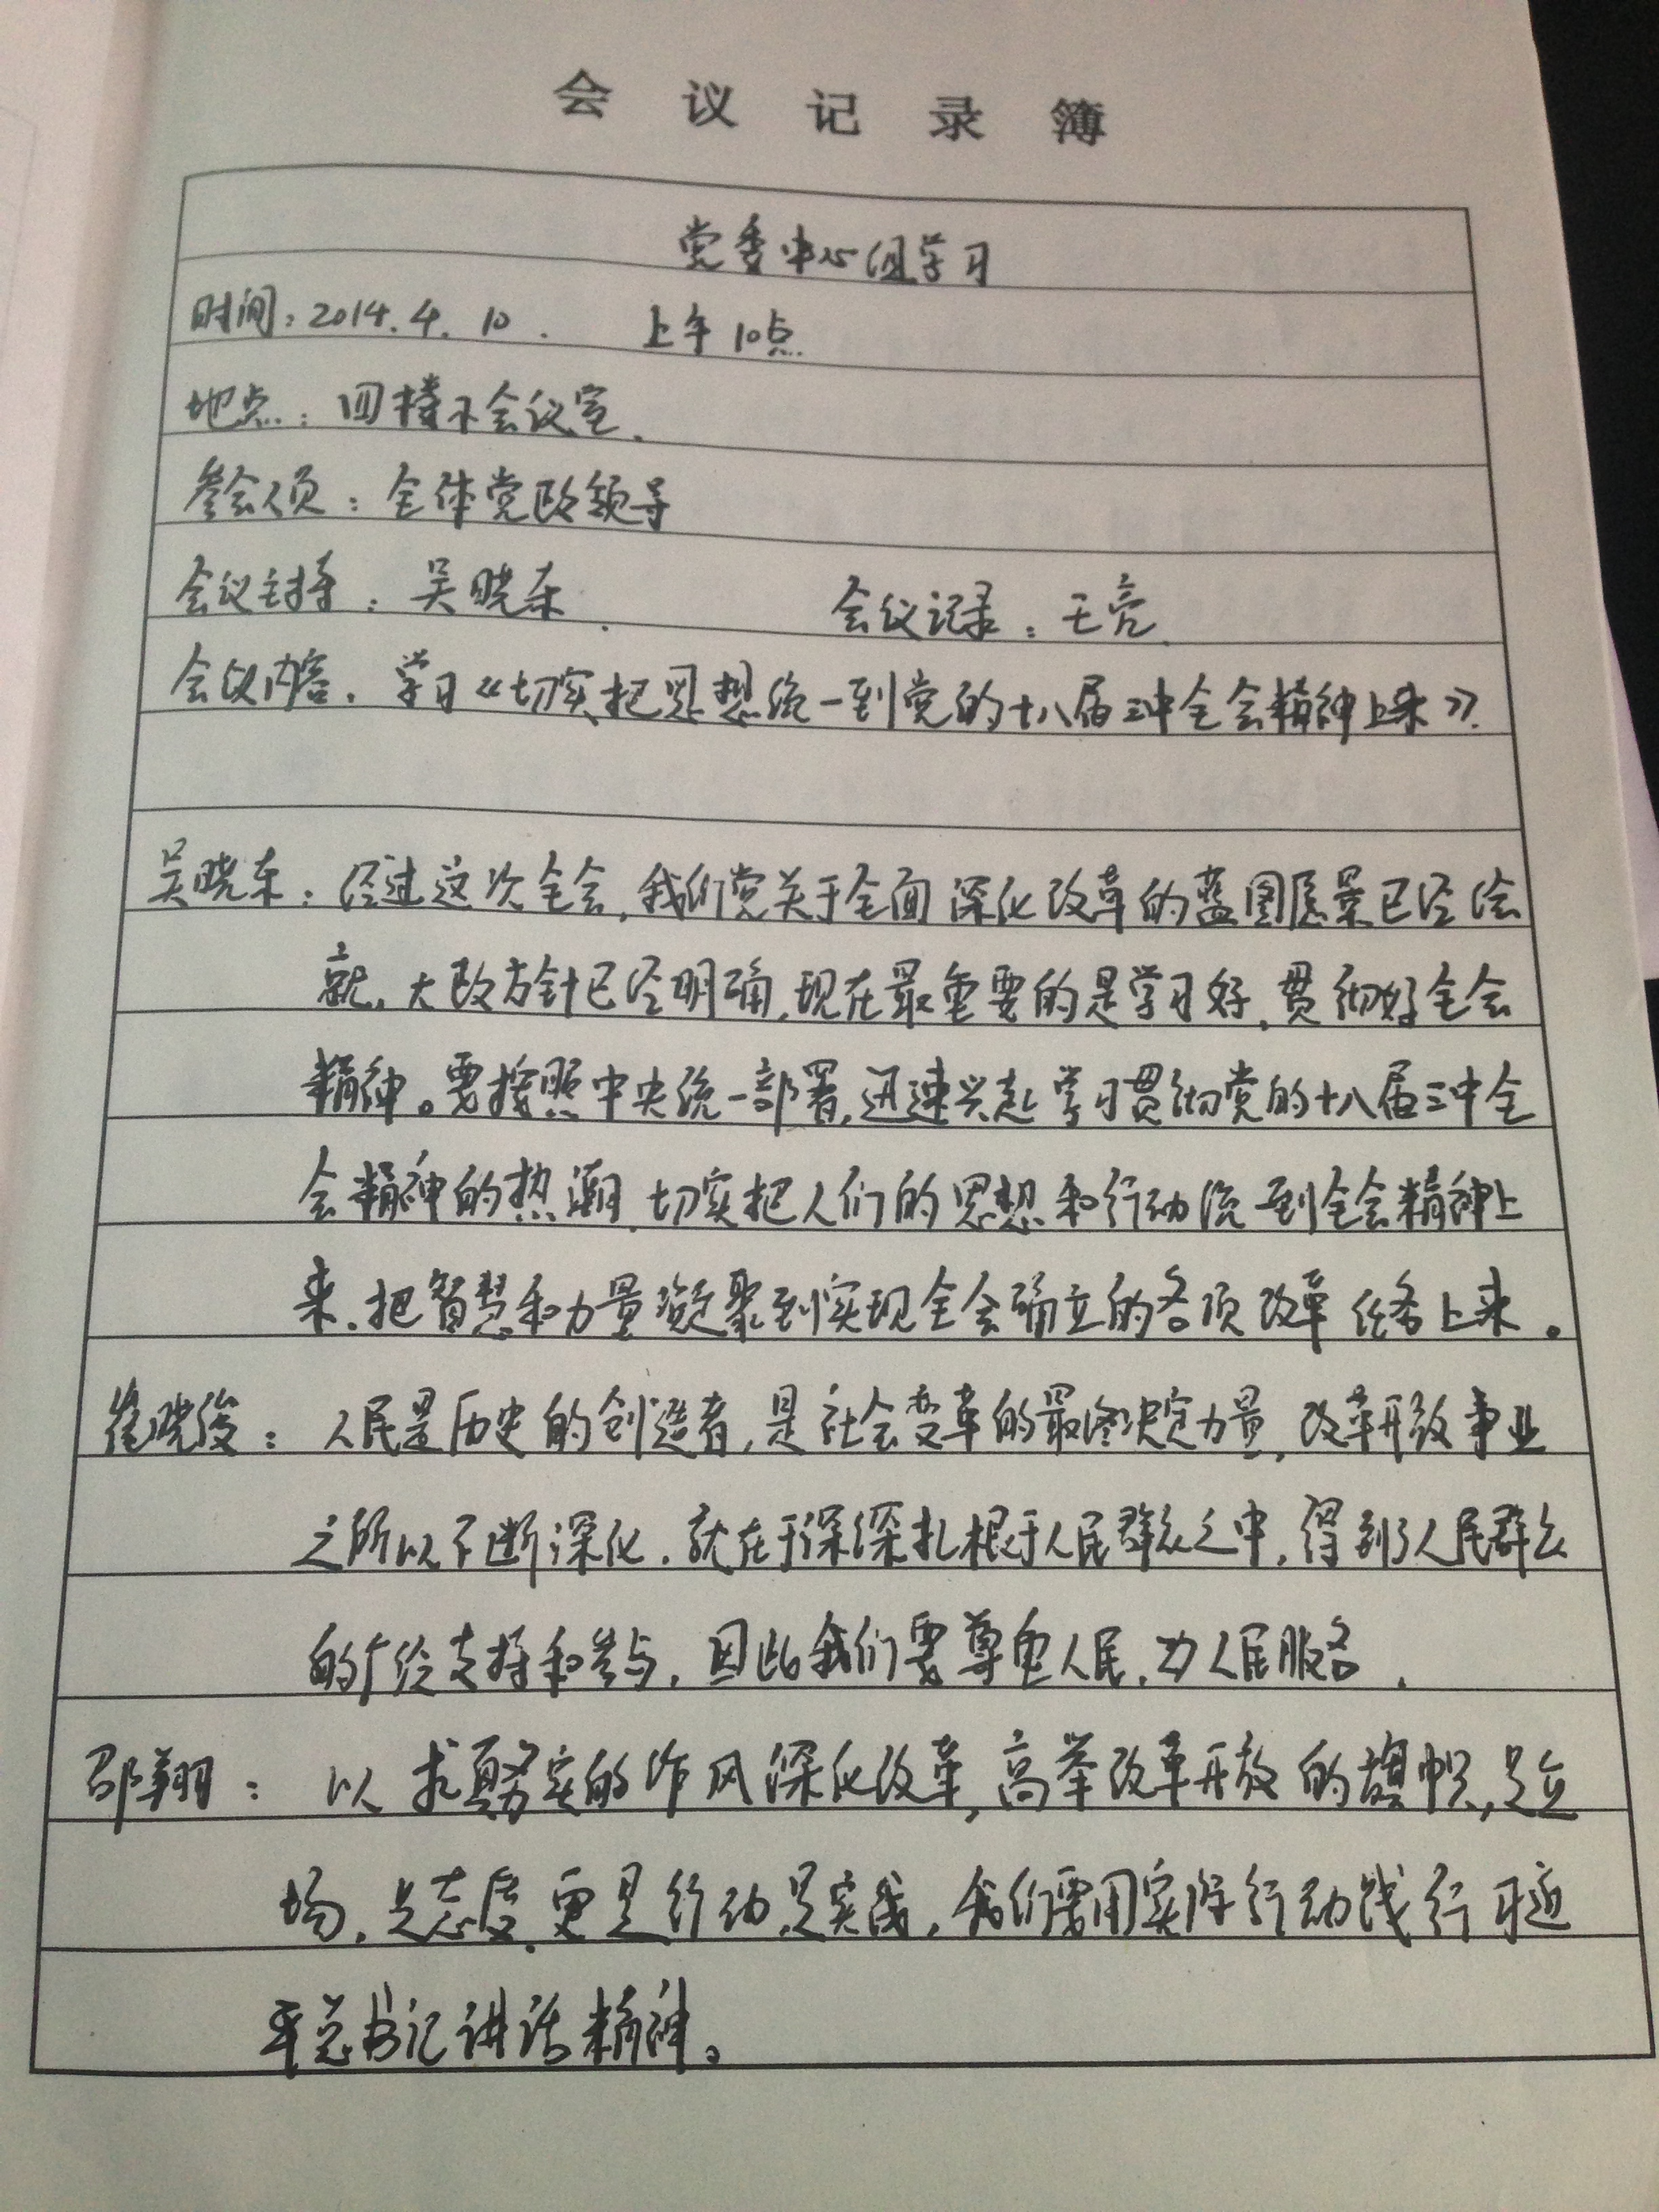 会议记录簿
党委中心组学习
时间：2014.4.10. 上午10点
地点：四楼小会议室.
参会人员：全体党政领导
会议主持：吴晓东. 会议记录：王亮.
会议内容：学习《切实把思想统一到党的十八届三中全会精神上来》.
吴晓东：经过这次全会，我们党关于全面深化改革的蓝图愿景已经绘
就，大政方针已经明确，现在最重要的是学习好，贯彻好全会
精神。要按照中央统一部署，迅速兴起学习贯彻党的十八届三中全
会精神的热潮，切实把人们的思想和行动统一到全会精神上
来，把智慧和力量凝聚到实现全会确立的各项改革任务上来。
崔晓俊：人民是历史的创造者，是社会变革的最终决定力量，改革开放事业
之所以不断深化，就在于深深扎根于人民群众之中，得到了人民群众
的广泛支持和参与，因此我们要尊重人民，为人民服务.
邵翔：以求真务实的作风深化改革，高举改革开放的旗帜，是立
场，是态度，更是行动，是实践，我们要用实际行动践行习近
平总书记讲话精神。